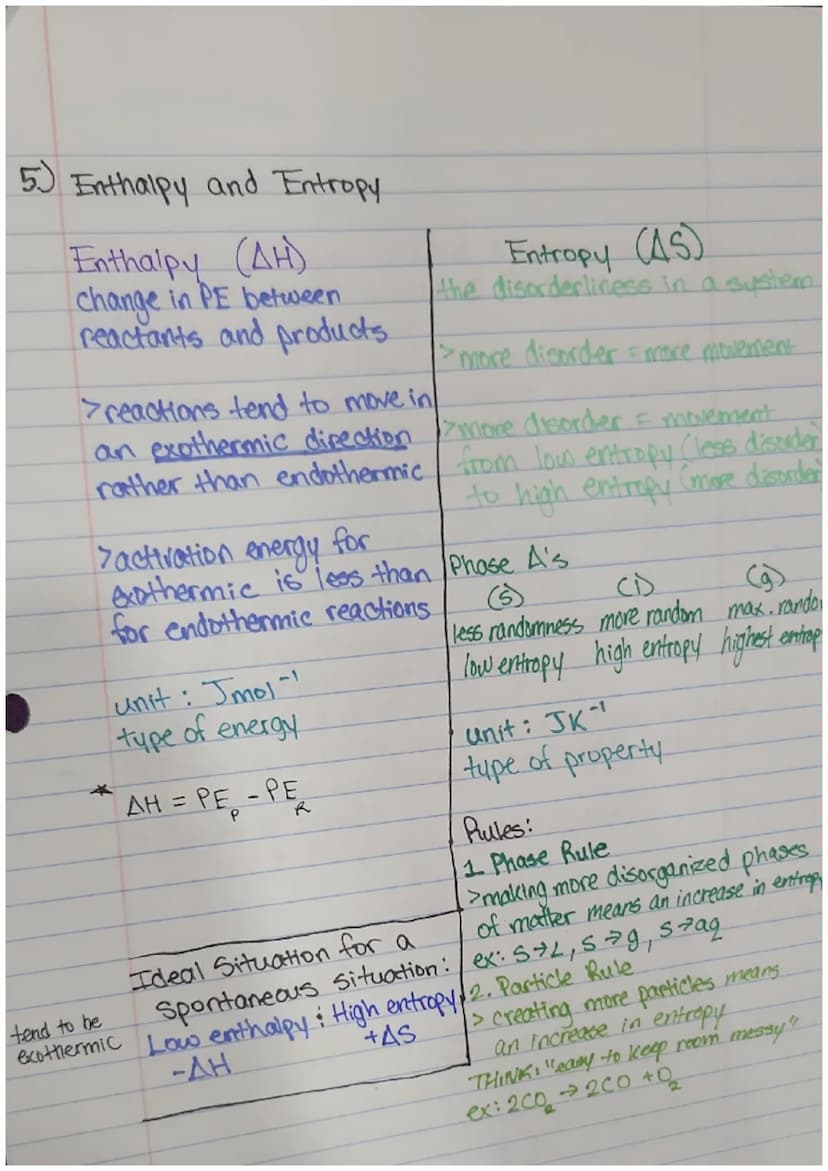 5.) Enthalpy and Entropy
Enthalpy (ΔH)
change in PE between
reactants and products
>reactions tend to move in
an exothermic direction
rather than endothermic
>activation energy for
exothermic is less than
for endothermic reactions
unit: Jmol⁻¹
type of energy
* ΔH = PE_P - PE_R
Ideal Situation for a
Spontaneous situation:
Low enthalpy ; High entropy
-ΔH +ΔS
tend to be
exothermic
Entropy (ΔS)
the disorderliness in a system
>more disorder = more movement
>more disorder = movement
from low entropy (less disorder)
to high entropy (more disorder)
Phase Δ's
(s) (l) (g)
less randomness more random max. rando
low entropy high entropy highest entrop
unit: JK⁻¹
type of property
Rules:
1 Phase Rule
>making more disorganized phases
of matter means an increase in entropy
ex: S→L, S→g, S→aq
2. Particle Rule
> creating more particles means
an increase in entropy
THINK: "easy to keep room messy"
ex: 2CO₂ → 2CO + O₂